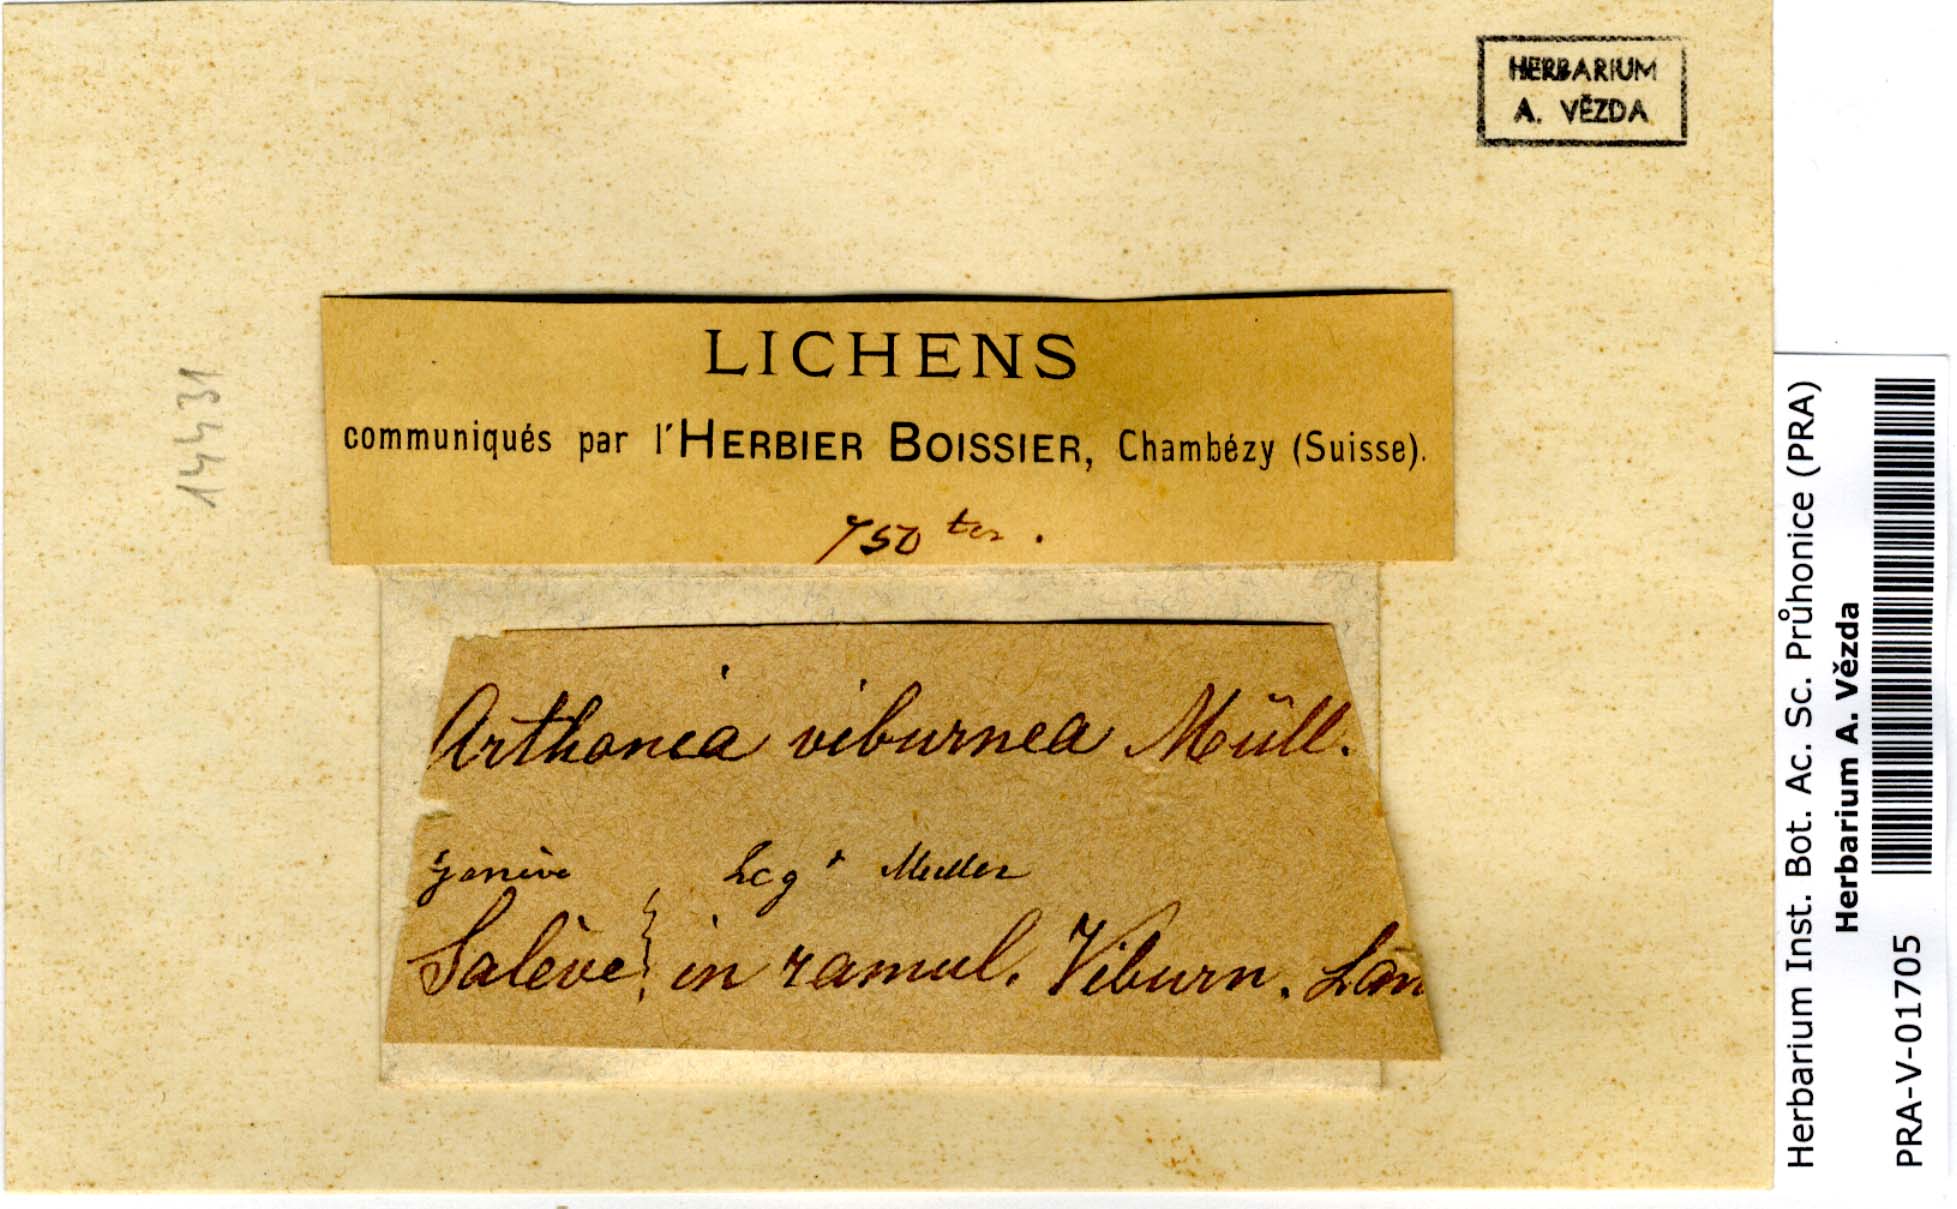 HERBARIUM
A. VĚZDA
14431
LICHENS
communiqués par l'HERBIER BOISSIER, Chambézy (Suisse).
750 ter.
Arthonia viburnea Müll.
genève Leg t Muller
Salève; in ramul. Viburn. Lan
Herbarium Inst. Bot. Ac. Sc. Průhonice (PRA)
Herbarium A. Vězda
PRA-V-01705